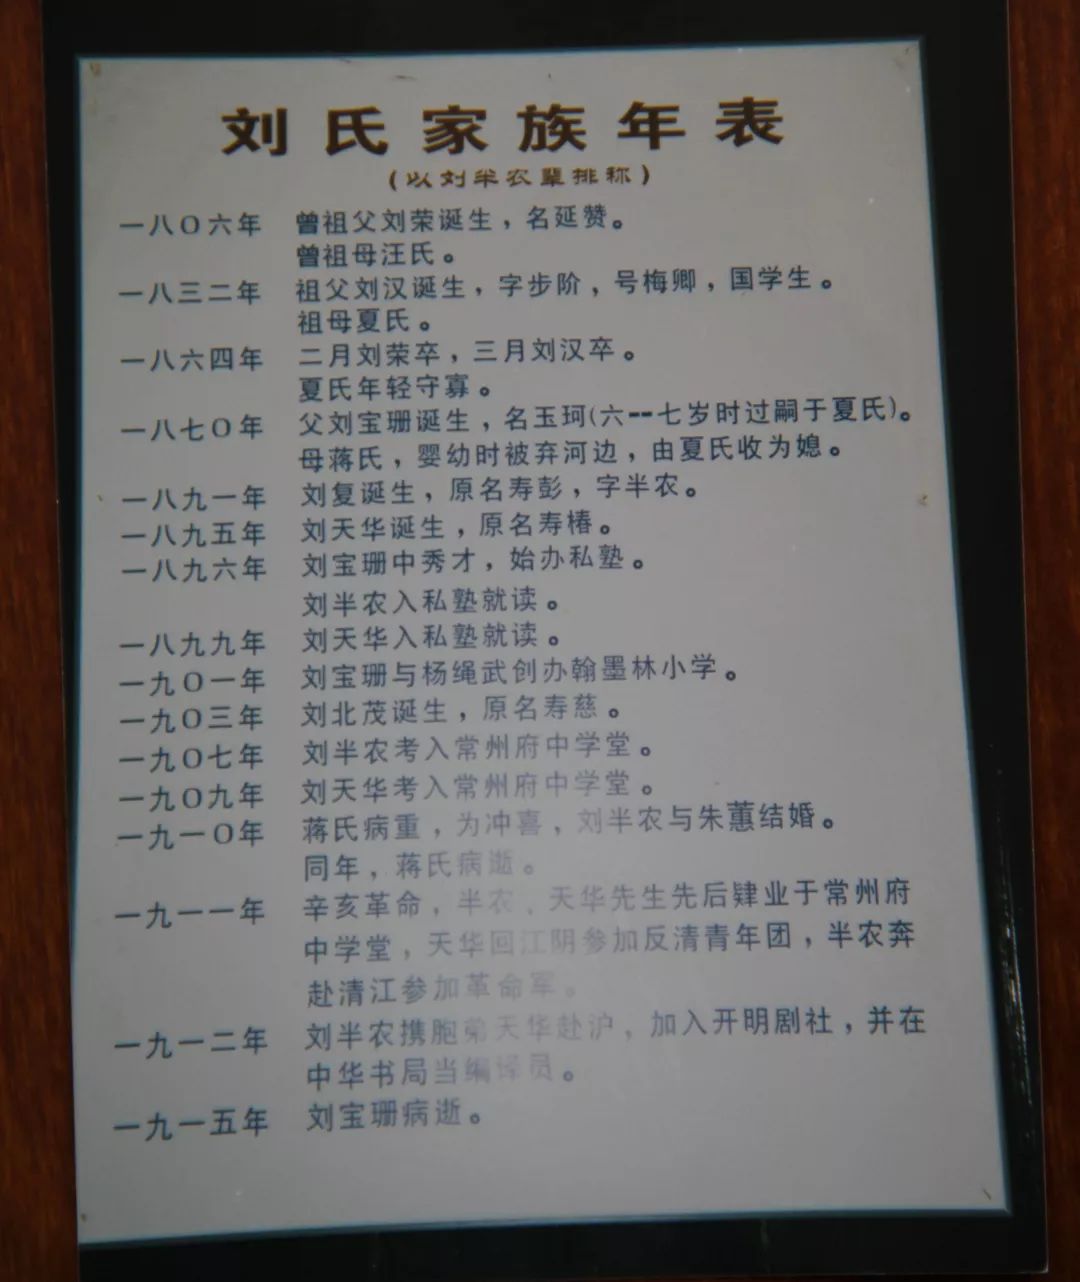 刘氏家族年表
(以刘半农辈排称)
一八〇六年 曾祖父刘荣诞生，名延赞。
曾祖母汪氏。
一八三二年 祖父刘汉诞生，字步阶，号梅卿，国学生。
祖母夏氏。
一八六四年 二月刘荣卒，三月刘汉卒。
夏氏年轻守寡。
一八七〇年 父刘宝珊诞生，名玉珂(六--七岁时过嗣于夏氏)。
母蒋氏，婴幼时被弃河边，由夏氏收为媳。
一八九一年 刘复诞生，原名寿彭，字半农。
一八九五年 刘天华诞生，原名寿椿。
一八九六年 刘宝珊中秀才，始办私塾。
刘半农入私塾就读。
一八九九年 刘天华入私塾就读。
一九〇一年 刘宝珊与杨绳武创办翰墨林小学。
一九〇三年 刘北茂诞生，原名寿慈。
一九〇七年 刘半农考入常州府中学堂。
一九〇九年 刘天华考入常州府中学堂。
一九一〇年 蒋氏病重，为冲喜，刘半农与朱蕙结婚。
同年，蒋氏病逝。
一九一一年 辛亥革命，半农、天华先生先后肄业于常州府
中学堂，天华回江阴参加反清青年团，半农奔
赴清江参加革命军。
一九一二年 刘半农携胞弟天华赴沪，加入开明剧社，并在
中华书局当编译员。
一九一五年 刘宝珊病逝。